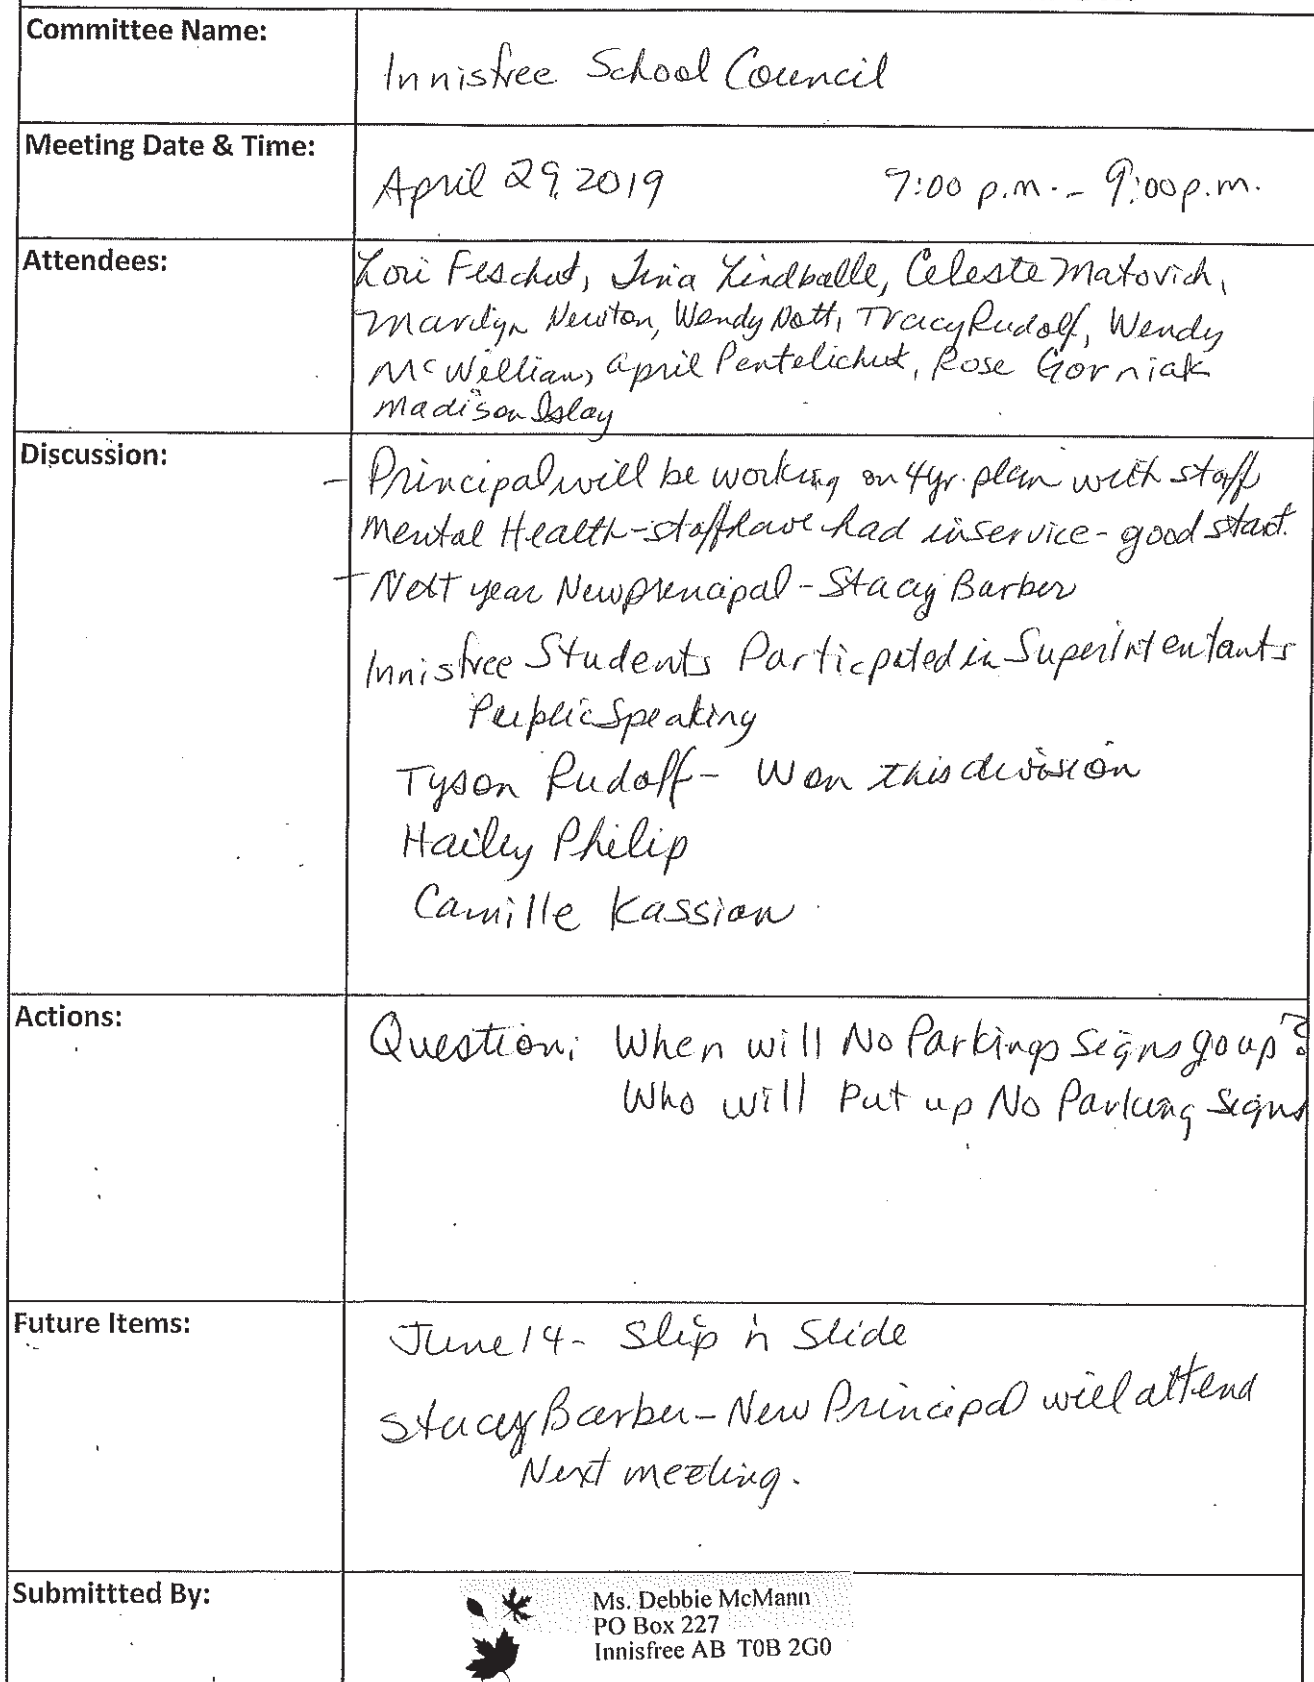 Committee Name:
Innisfree School Council
Meeting Date & Time:
April 29, 2019 7:00 p.m. - 9:00 p.m.
Attendees:
Lori Feschuk, Tina Lindballe, Celeste Matovich,
Marilyn Newton, Wendy Nott, Tracy Rudolf, Wendy
McWilliam, April Pentelichuk, Rose Gorniak
Madison Islay
Discussion:
- Principal will be working on 4yr. plan with staff
Mental Health - staff have had inservice - good start.
- Next year New principal - Stacey Barber
Innisfree Students Particpated in Superintentants
Public Speaking
Tyson Rudolf - Won this division
Hailey Philip
Camille Kassian
Actions:
Question: When will No Parkings Signs go up?
Who will Put up No Parking Signs
Future Items:
June 14 - Slip 'n Slide
Stacey Barber - New Principal will attend
Next meeting.
Submittted By:
Ms. Debbie McMann
PO Box 227
Innisfree AB T0B 2G0